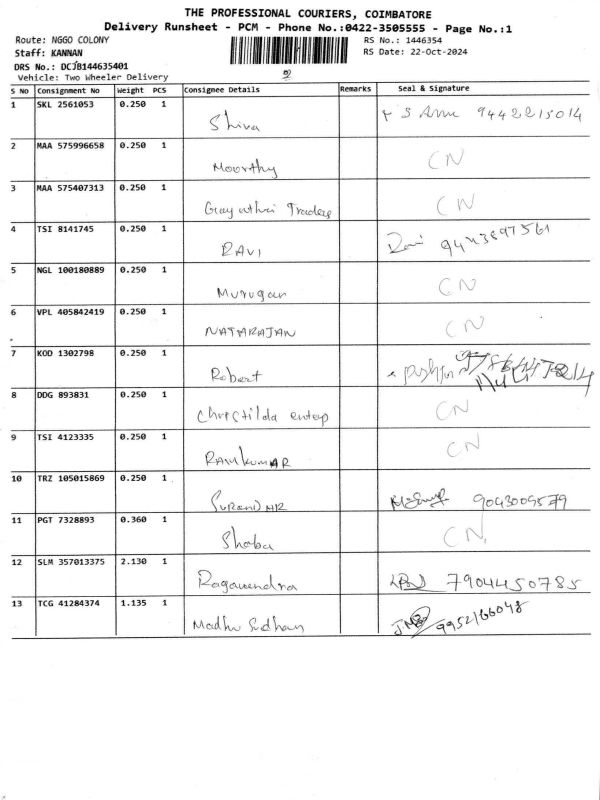 THE PROFESSIONAL COURIERS, COIMBATORE
Delivery Runsheet - PCM - Phone No.:0422-3505555 - Page No.:1
Route: NGGO COLONY
RS No.: 1446354
Staff: KANNAN
RS Date: 22-Oct-2024
DRS No.: DCJB144635401
Vehicle: Two Wheeler Delivery
S No Consignment No Weight PCS Consignee Details Remarks Seal & Signature
1 SKL 2561053 0.250 1 Shiva 9442215014
2 MAA 575996658 0.250 1 Moorthy CN
3 MAA 575407313 0.250 1 Gayathri Traders CN
4 TSI 8141745 0.250 1 RAVI Ravi
5 NGL 100180889 0.250 1 Murugan CN
6 VPL 405842419 0.250 1 NATARAJAN CN
7 KOD 1302798 0.250 1 Robert
8 DDG 893831 0.250 1 Christilda enterp CN
9 TSI 4123335 0.250 1 RAMKUMAR CN
10 TRZ 105015869 0.250 1 9043009579
11 PGT 7328893 0.360 1 Shoba CN
12 SLM 357013375 2.130 1 Ragavendra 7904450785
13 TCG 41284374 1.135 1 Madhu Sudhan 9952166048